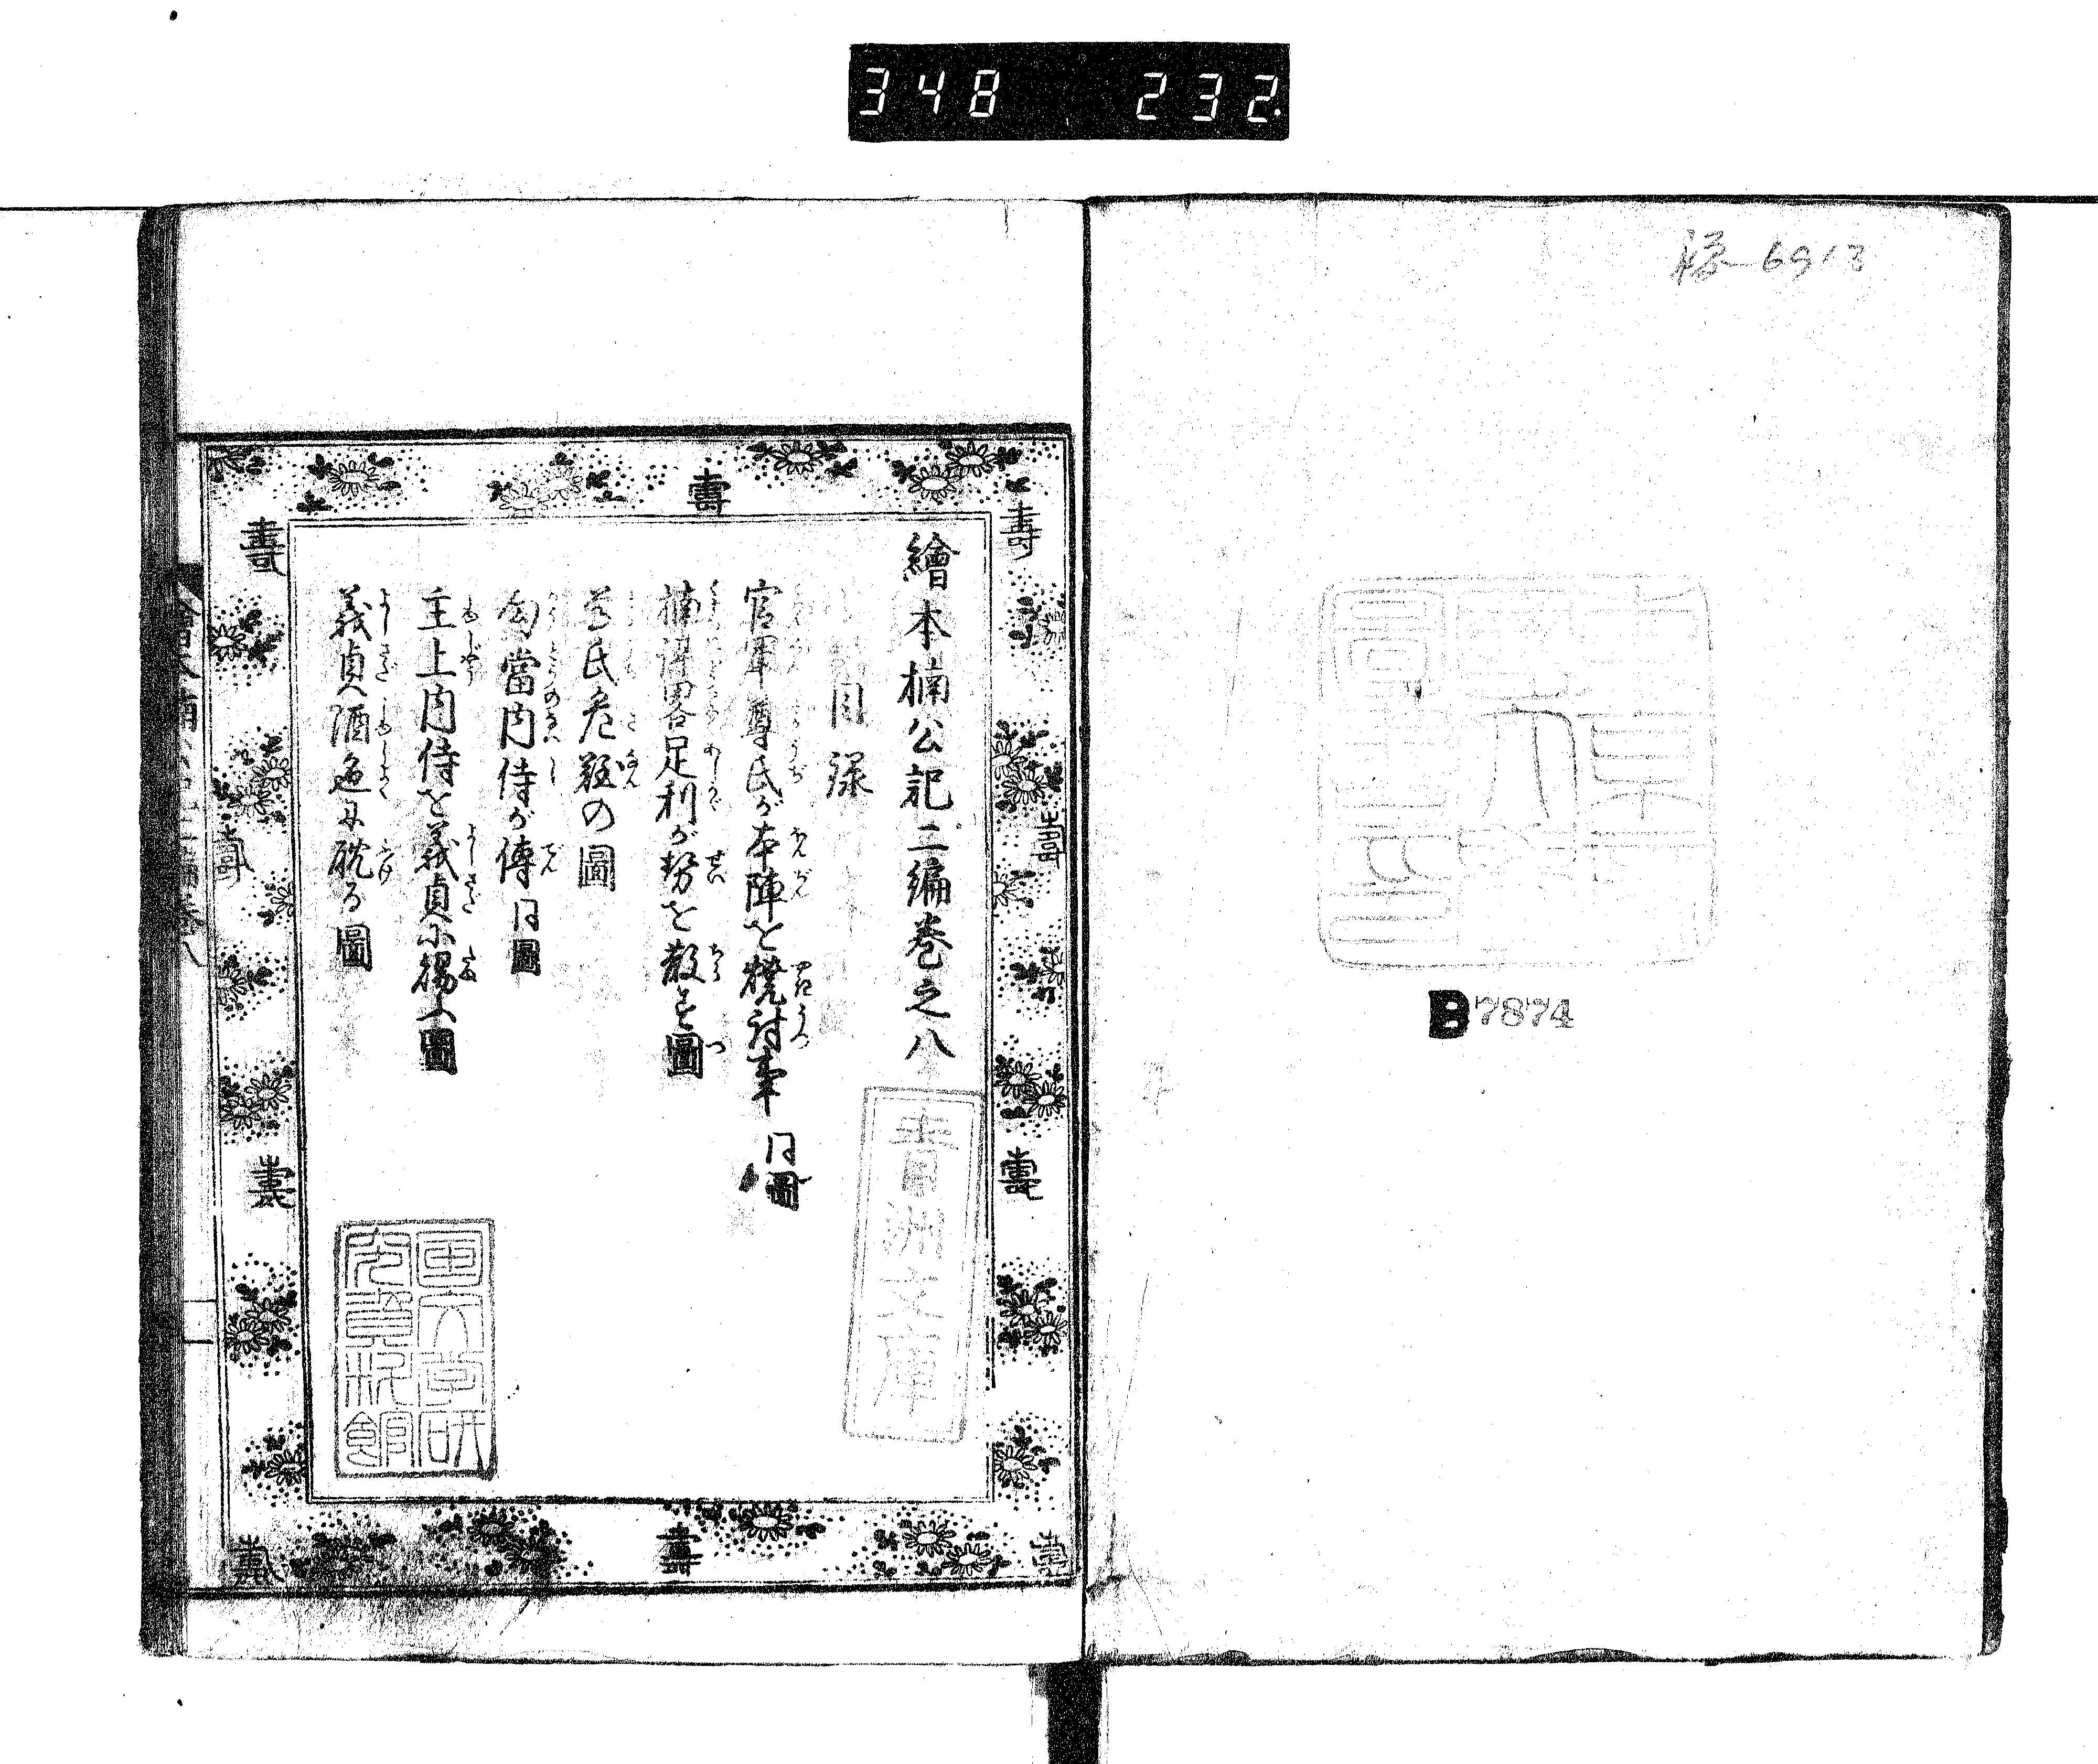 348 232
6913
B7874
繪本楠公記二編巻之八
目録
官軍尊氏が本陣を焼討事 同圖
楠謀畧足利が勢を散ず圖
尊氏危難の圖
勾當内侍が傳 同圖
主上内侍を義貞に賜ふ圖
義貞酒色に耽る圖
青洲文庫
国文学研
究資料館
壽